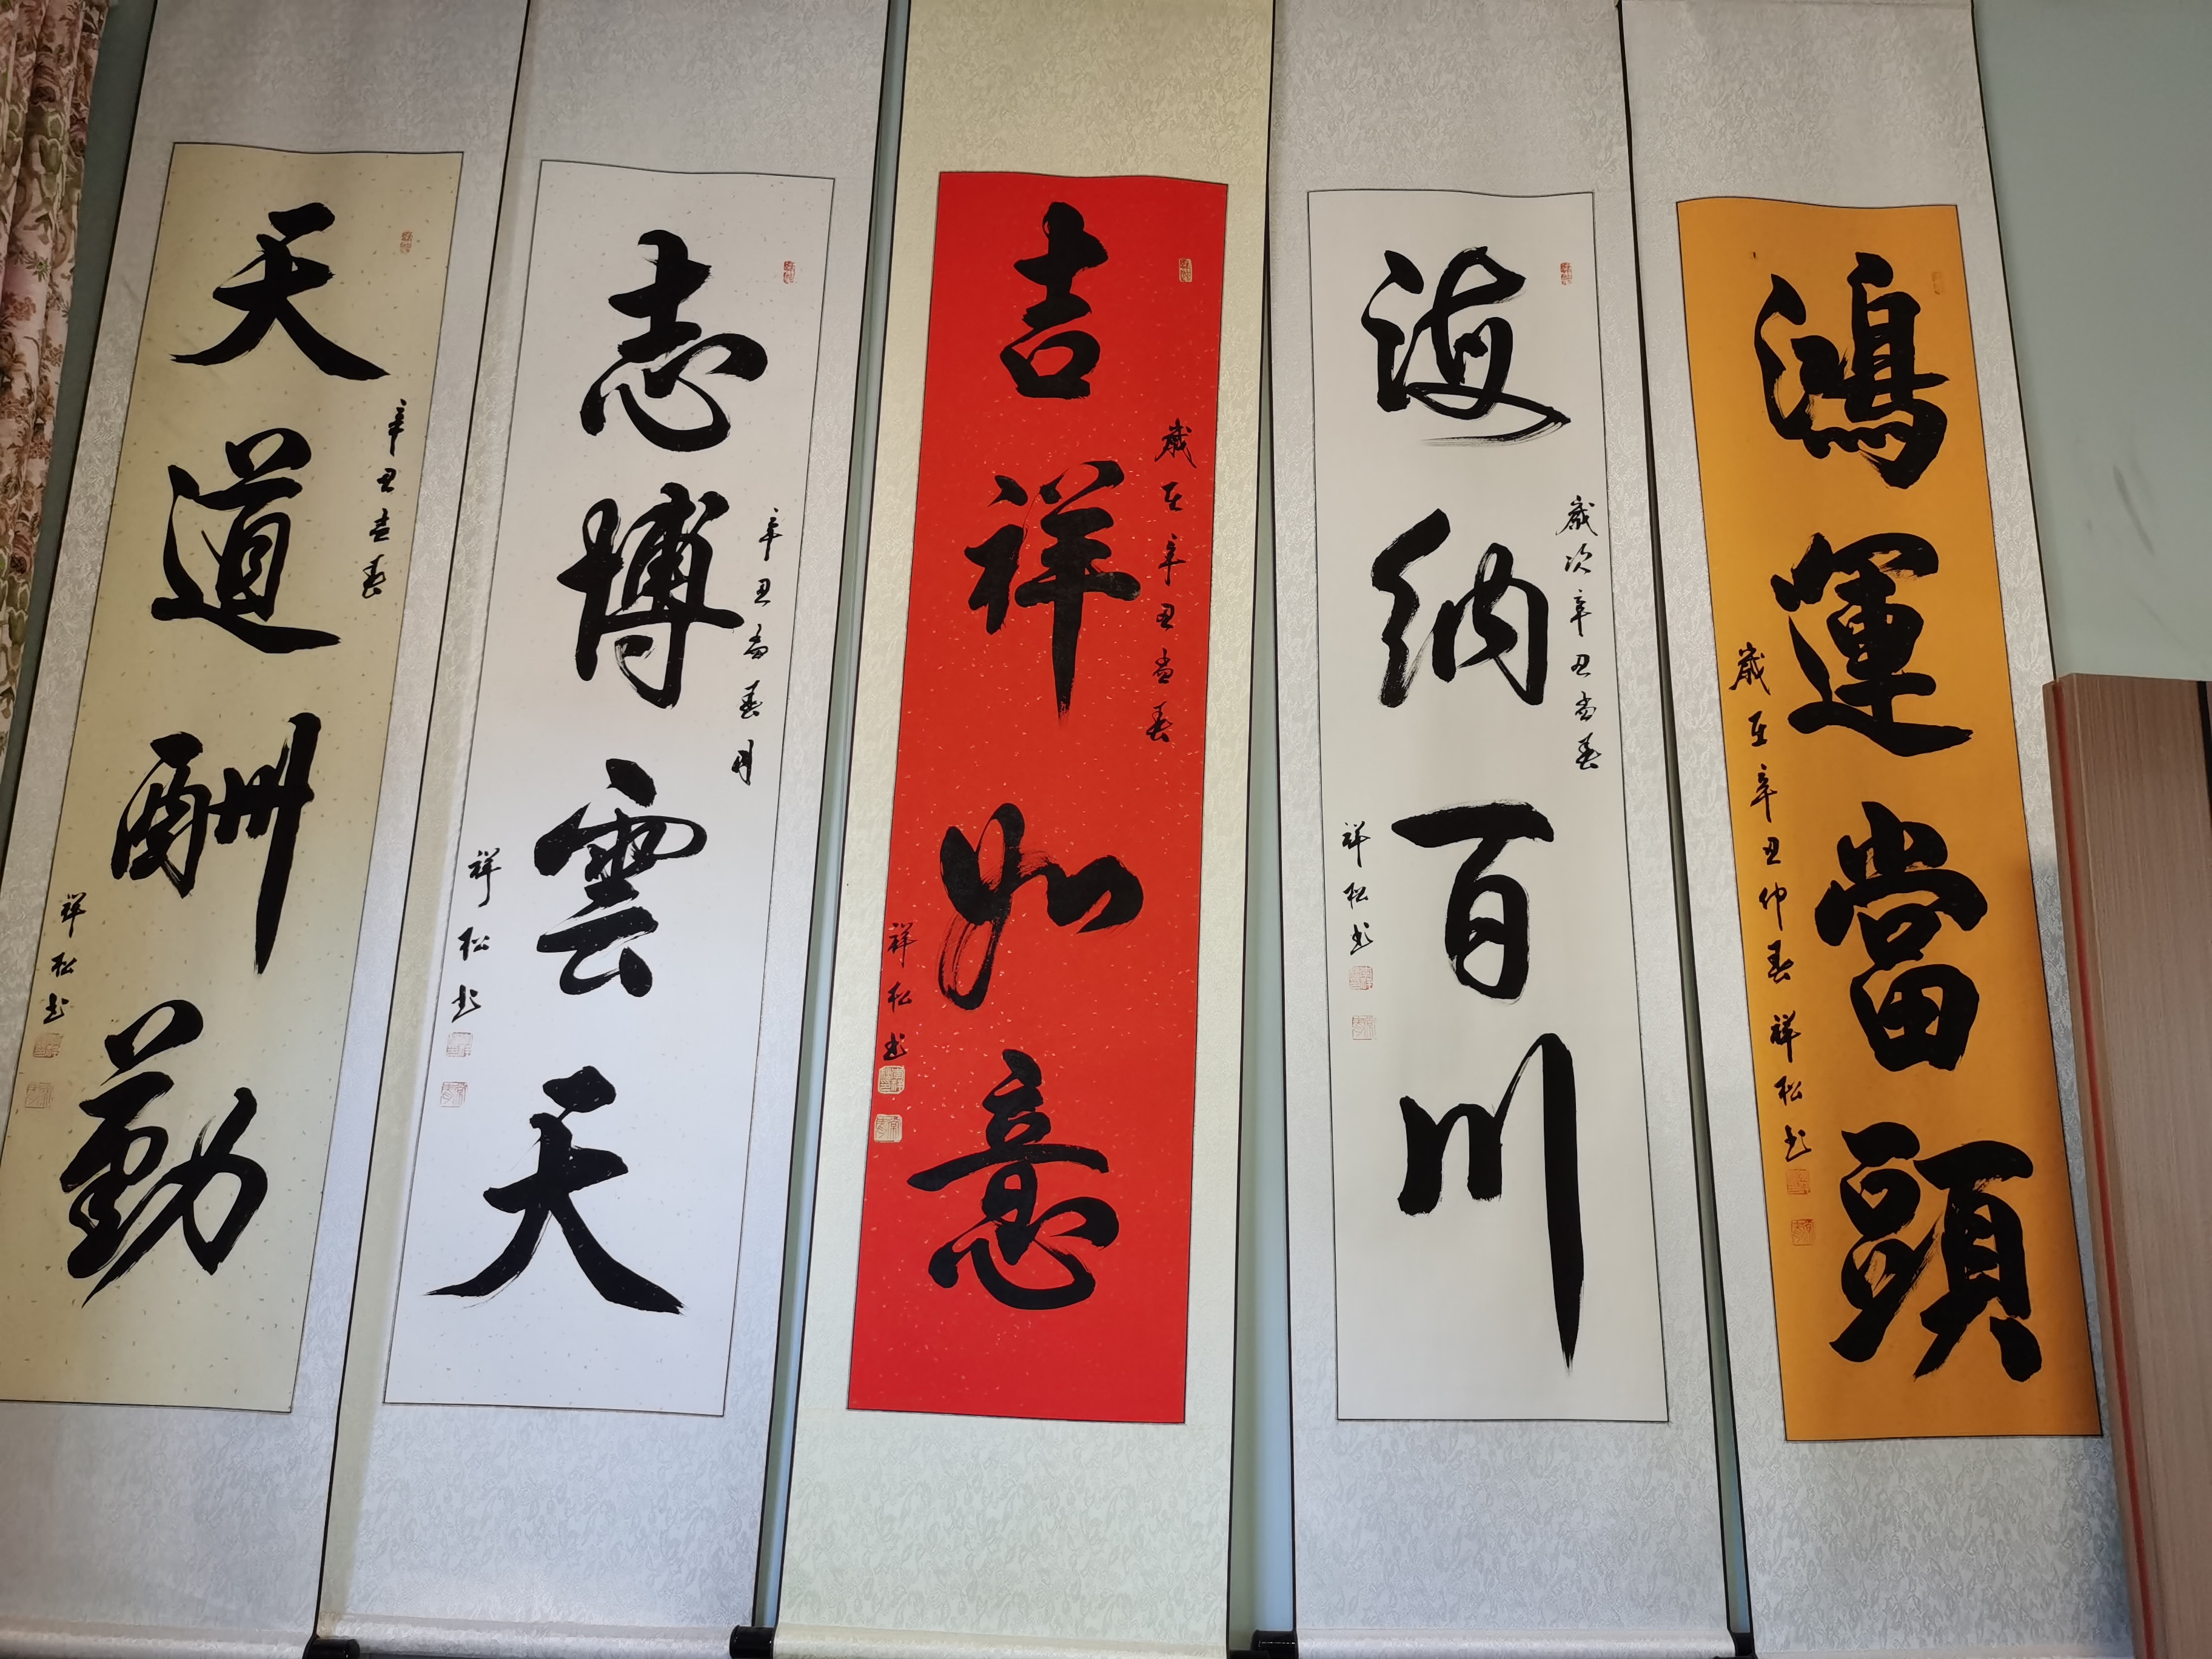 鴻運當頭
歲在辛丑仲春 祥松书
海納百川
歲次辛丑孟春
祥松书
吉祥如意
歲在辛丑孟春
祥松书
志博雲天
辛丑孟春月
祥松书
天道酬勤
辛丑孟春
祥松书